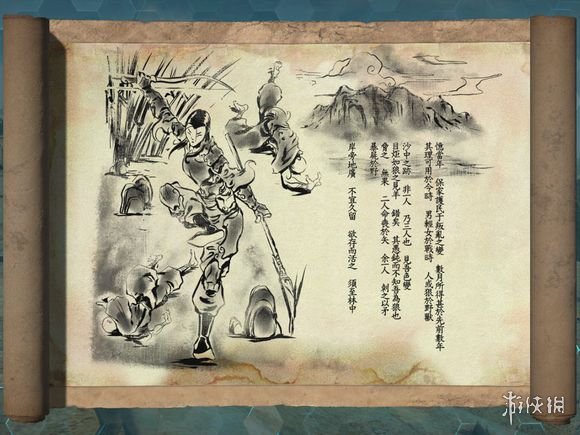 憶當年　保家護民于叛亂之變　數月所得甚於先前數年
其理可用於今時　男輕女於戰時　人或狠於野獸
沙中之跡　非一人　乃三人也　見吾色變
目炬如狼之見羊　錯矣　其愚鈍而不知吾為狼也
脅之　無果　二人命喪於矢　余一人　刺之以矛
暴屍於野
岸旁地廣　不宜久留　欲存而活之　須至林中
游侠網